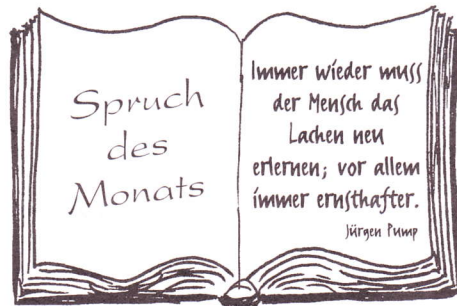 Spruch
des
Monats
Immer wieder muss
der Mensch das
Lachen neu
erlernen; vor allem
immer ernsthafter.
Jürgen Pump